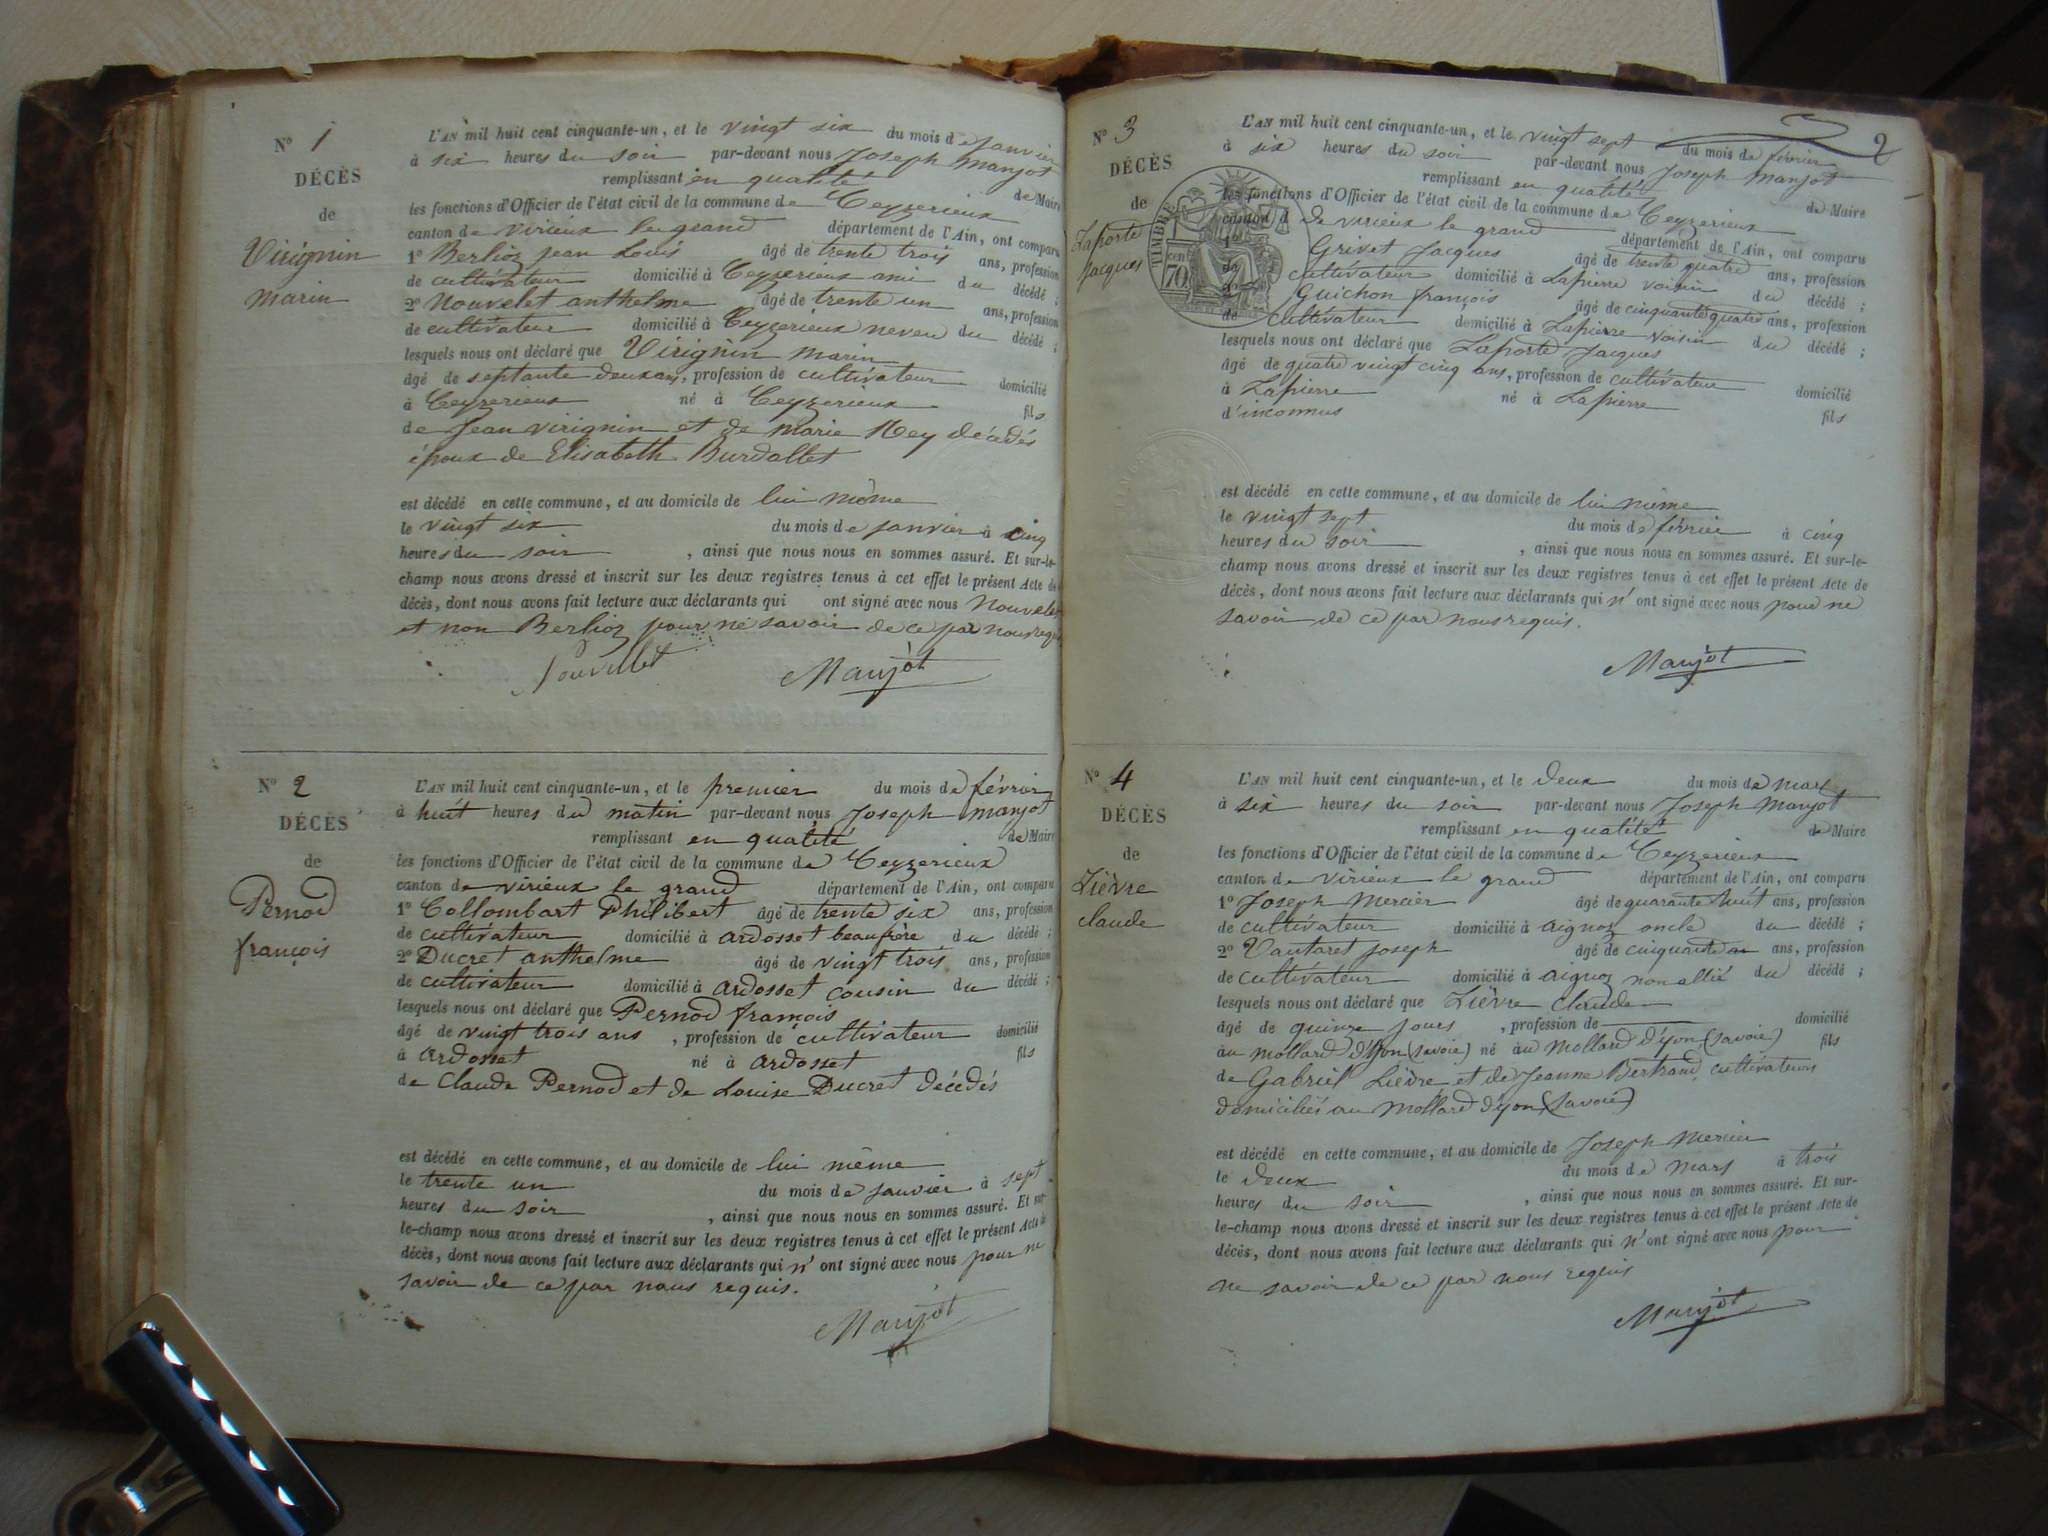 N° 1
DÉCÈS
de
Virignin
marin
L'AN mil huit cent cinquante-un, et le vingt six du mois de janvier
à six heures du soir par-devant nous Joseph Manjot
remplissant en qualité de Maire
les fonctions d'Officier de l'état civil de la commune de Ceyzerieux
canton de virieux le grand département de l'Ain, ont comparu
1° Berlioz jean Louis âgé de trente trois ans, profession
de cultivateur domicilié à Ceyzerieux ami du décédé ;
2° Nouvelet anthelme âgé de trente un ans, profession
de cultivateur domicilié à Ceyzerieux neveu du décédé ;
lesquels nous ont déclaré que Virignin marin
âgé de septante deux ans, profession de cultivateur domicilié
à Ceyzerieux né à Ceyzerieux fils
de jean virignin et de marie Rey décédés
époux de Elisabeth Burdallet
est décédé en cette commune, et au domicile de lui même
le vingt six du mois de janvier à cinq
heures du soir , ainsi que nous nous en sommes assuré. Et sur-le-
champ nous avons dressé et inscrit sur les deux registres tenus à cet effet le présent Acte de
décès, dont nous avons fait lecture aux déclarants qui ont signé avec nous Nouvelet
et non Berlioz pour ne savoir de ce par nous requis
Nouvellet Manjot
N° 2
DÉCÈS
de
Pernod
françois
L'AN mil huit cent cinquante-un, et le premier du mois de février
à huit heures du matin par-devant nous Joseph manjot
remplissant en qualité de Maire
les fonctions d'Officier de l'état civil de la commune de Ceyzerieux
canton de virieux le grand département de l'Ain, ont comparu
1° Collombart Philibert âgé de trente six ans, profession
de cultivateur domicilié à ardosset beaufrère du décédé ;
2° Ducret anthelme âgé de vingt trois ans, profession
de cultivateur domicilié à ardosset cousin du décédé ;
lesquels nous ont déclaré que Pernod françois
âgé de vingt trois ans , profession de cultivateur domicilié
à ardosset né à ardosset fils
de claude Pernod et de Louise Ducret décédés
est décédé en cette commune, et au domicile de lui même
le trente un du mois de janvier à sept
heures du soir , ainsi que nous nous en sommes assuré. Et sur-
le-champ nous avons dressé et inscrit sur les deux registres tenus à cet effet le présent Acte de
décès, dont nous avons fait lecture aux déclarants qui n'ont signé avec nous pour ne
savoir de ce par nous requis.
Manjot
2
N° 3
DÉCÈS
de
Laporte
jacques
TIMBRE
70
L'AN mil huit cent cinquante-un, et le vingt sept du mois de février
à six heures du soir par-devant nous Joseph Manjot
remplissant en qualité de Maire
les fonctions d'Officier de l'état civil de la commune de Ceyzerieux
canton de virieux le grand département de l'Ain, ont comparu
1° Grivet Jacques âgé de trente quatre ans, profession
de cultivateur domicilié à Lapierre voisin du décédé ;
2° Guichon françois âgé de cinquante quatre ans, profession
de cultivateur domicilié à Lapierre voisin du décédé ;
lesquels nous ont déclaré que Laporte Jacques
âgé de quatre vingt cinq ans, profession de cultivateur domicilié
à Lapierre né à Lapierre fils
d'inconnus
est décédé en cette commune, et au domicile de lui même
le vingt sept du mois de février à cinq
heures du soir , ainsi que nous nous en sommes assuré. Et sur-le-
champ nous avons dressé et inscrit sur les deux registres tenus à cet effet le présent Acte de
décès, dont nous avons fait lecture aux déclarants qui n'ont signé avec nous pour ne
savoir de ce par nous requis.
Manjot
N° 4
DÉCÈS
de
Lièvre
claude
L'AN mil huit cent cinquante-un, et le deux du mois de mars
à six heures du soir par-devant nous Joseph Manjot
remplissant en qualité de Maire
les fonctions d'Officier de l'état civil de la commune de Ceyzerieux
canton de virieux le grand département de l'Ain, ont comparu
1° Joseph Mercier âgé de quarante huit ans, profession
de cultivateur domicilié à aignoz oncle du décédé ;
2° Vautaret joseph âgé de cinquante un ans, profession
de cultivateur domicilié à aignoz non allié du décédé ;
lesquels nous ont déclaré que Lièvre claude
âgé de quinze jours , profession de domicilié
au mollard d'yon (savoie) né au mollard d'yon (savoie) fils
de Gabriel Lièvre et de Jeanne Bertrand cultivateurs
domiciliés au mollard d'yon (savoie)
est décédé en cette commune, et au domicile de Joseph Mercier
le deux du mois de mars à trois
heures du soir , ainsi que nous nous en sommes assuré. Et sur-
le-champ nous avons dressé et inscrit sur les deux registres tenus à cet effet le présent Acte de
décès, dont nous avons fait lecture aux déclarants qui n'ont signé avec nous pour
ne savoir de ce par nous requis
Manjot